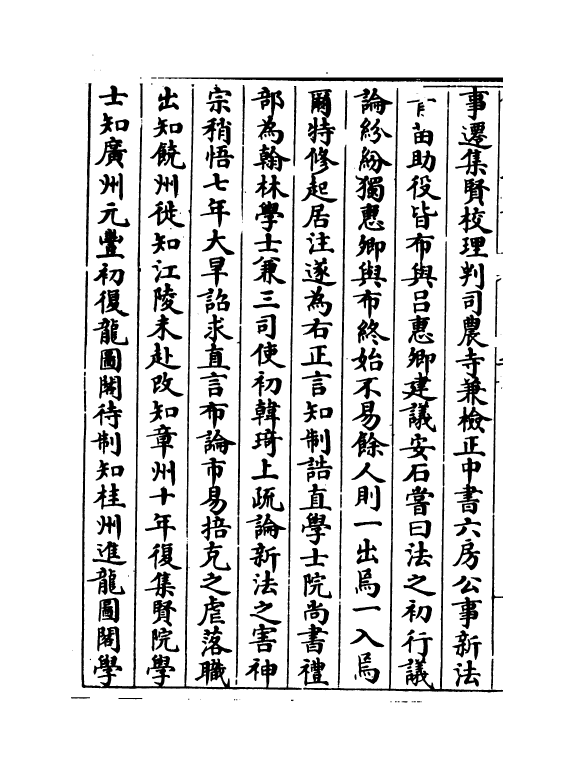 事遷集賢校理判司農寺兼檢正中書六房公事新法
青苗助役皆布與呂惠卿建議安石嘗曰法之初行議
論紛紛獨惠卿與布終始不易餘人則一出焉一入焉
爾特修起居注遂為右正言知制誥直學士院尚書禮
部為翰林學士兼三司使初韓琦上疏論新法之害神
宗稍悟七年大旱詔求直言布論市易掊克之虐落職
出知饒州徙知江陵未赴改知章州十年復集賢院學
士知廣州元豐初復龍圖閣待制知桂州進龍圖閣學